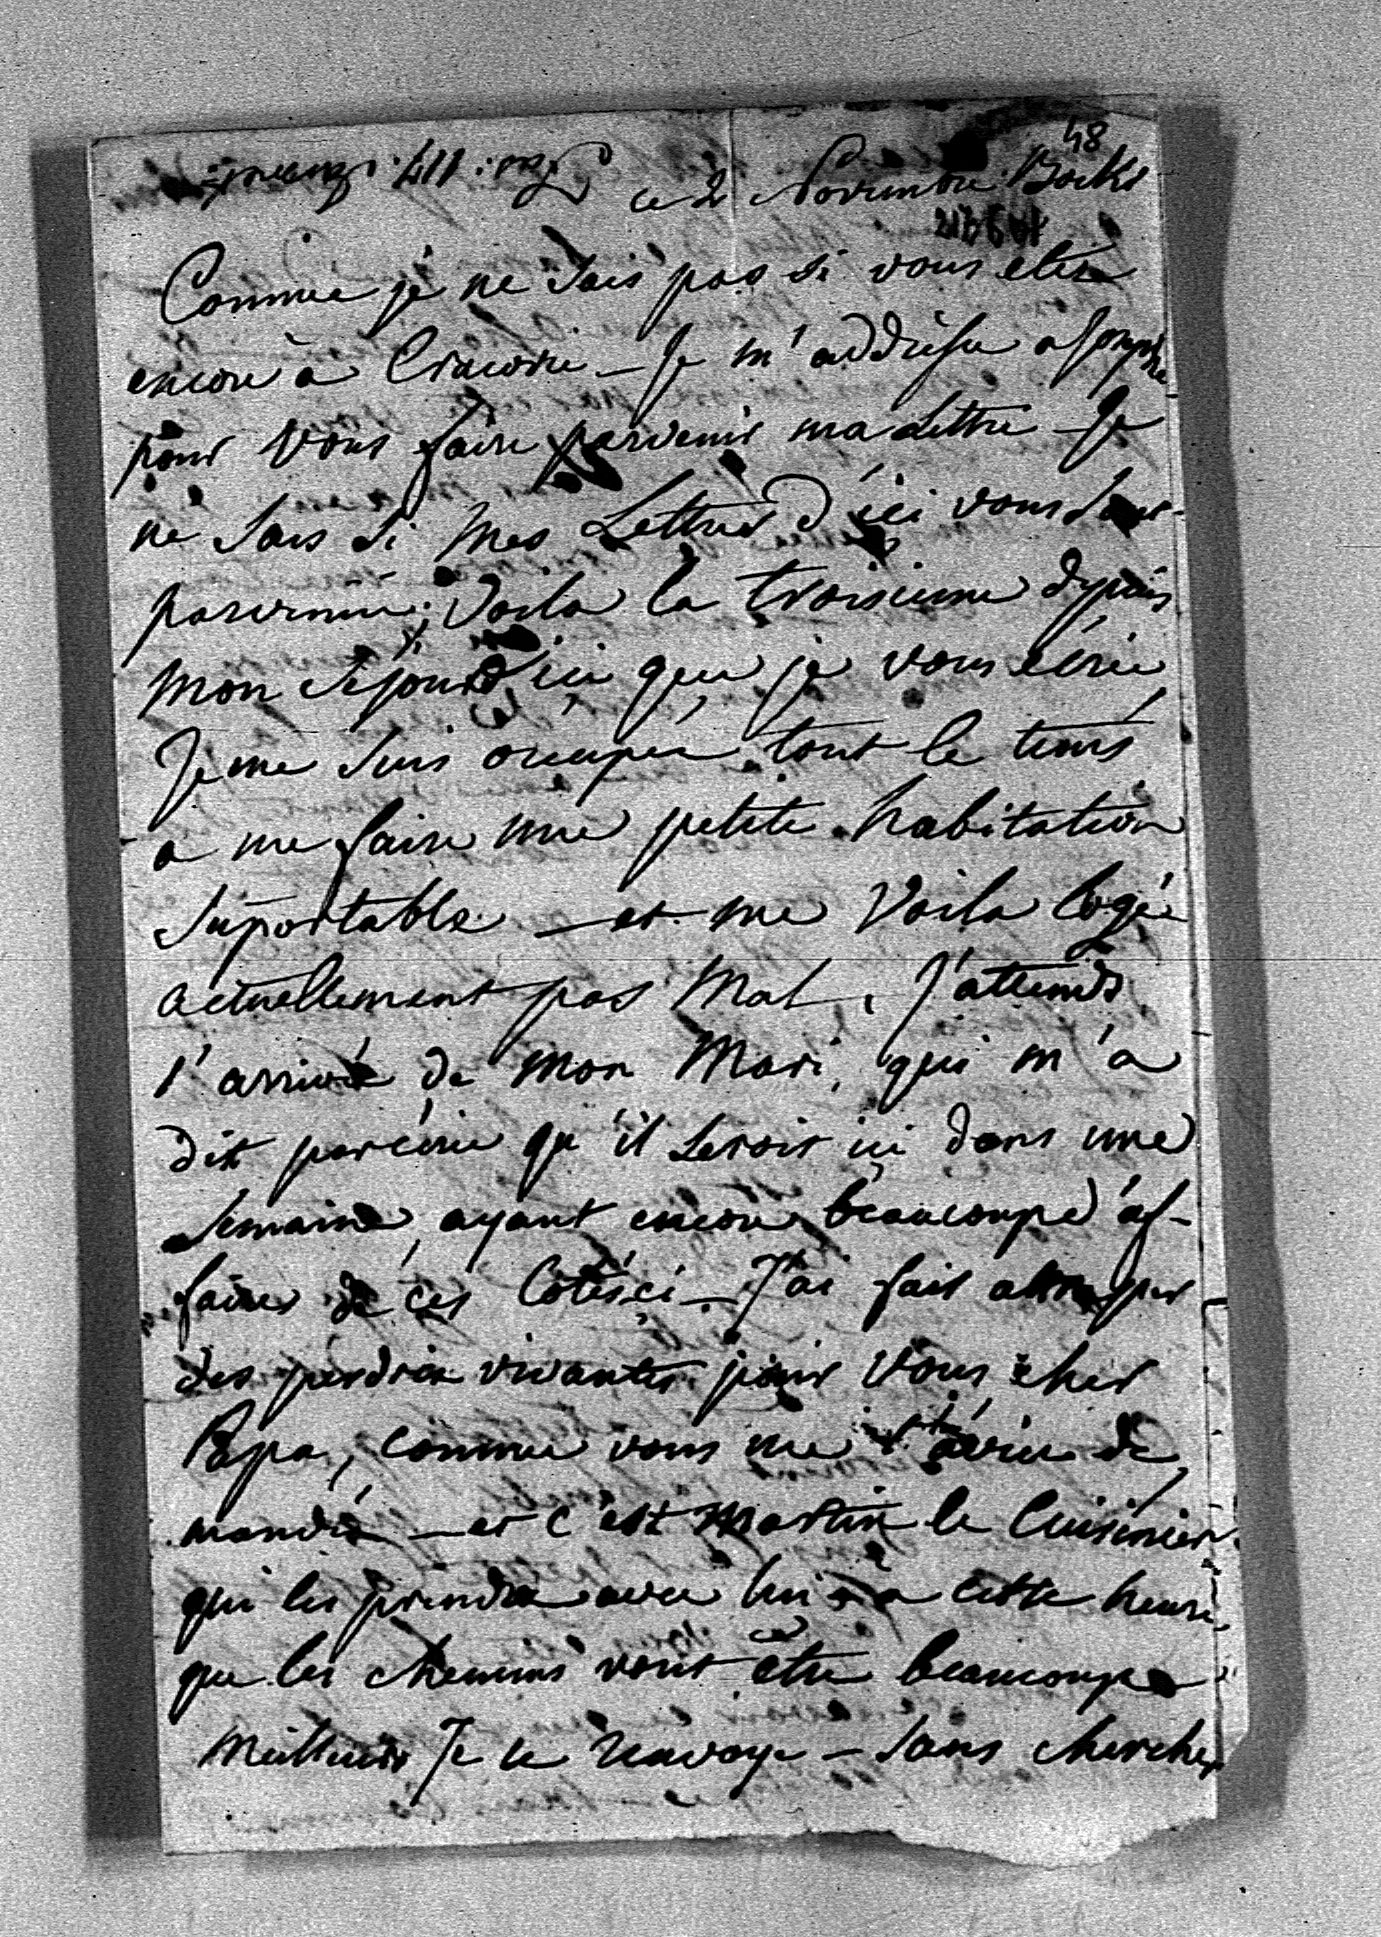 48
ce 2 Novembre Bocki
Comme je ne sais pas si vous etes
encore à Cracovie – Je m'addresse a
pour vous faire parvenir ma Lettre – Je
ne sais si mes Lettres d'ici vous sont
parvenue; voila la troisieme depuis
mon sejour d'ici que je vous écrie
Je me suis occupée tout le tems
a me faire une petite habitation
suportable – et me voila logée
actuellement pas mal, J'attends
l'arrivée de mon Mari, qui m'a
dit par écrie qu'il seroit ici dans une
Semaine, ayant encore beaucoup d'af-
faires de ces Cotés ci – J'ai fait
des perdrix vivantes pour vous cher
Papa, comme vous me l'aviez de
mandé – et c'est Martin le Cuisinier
qui les prendra avec lui – a cette heure
que les chemins vont être beaucoup
meilleurs Je le renvoye – sans chercher